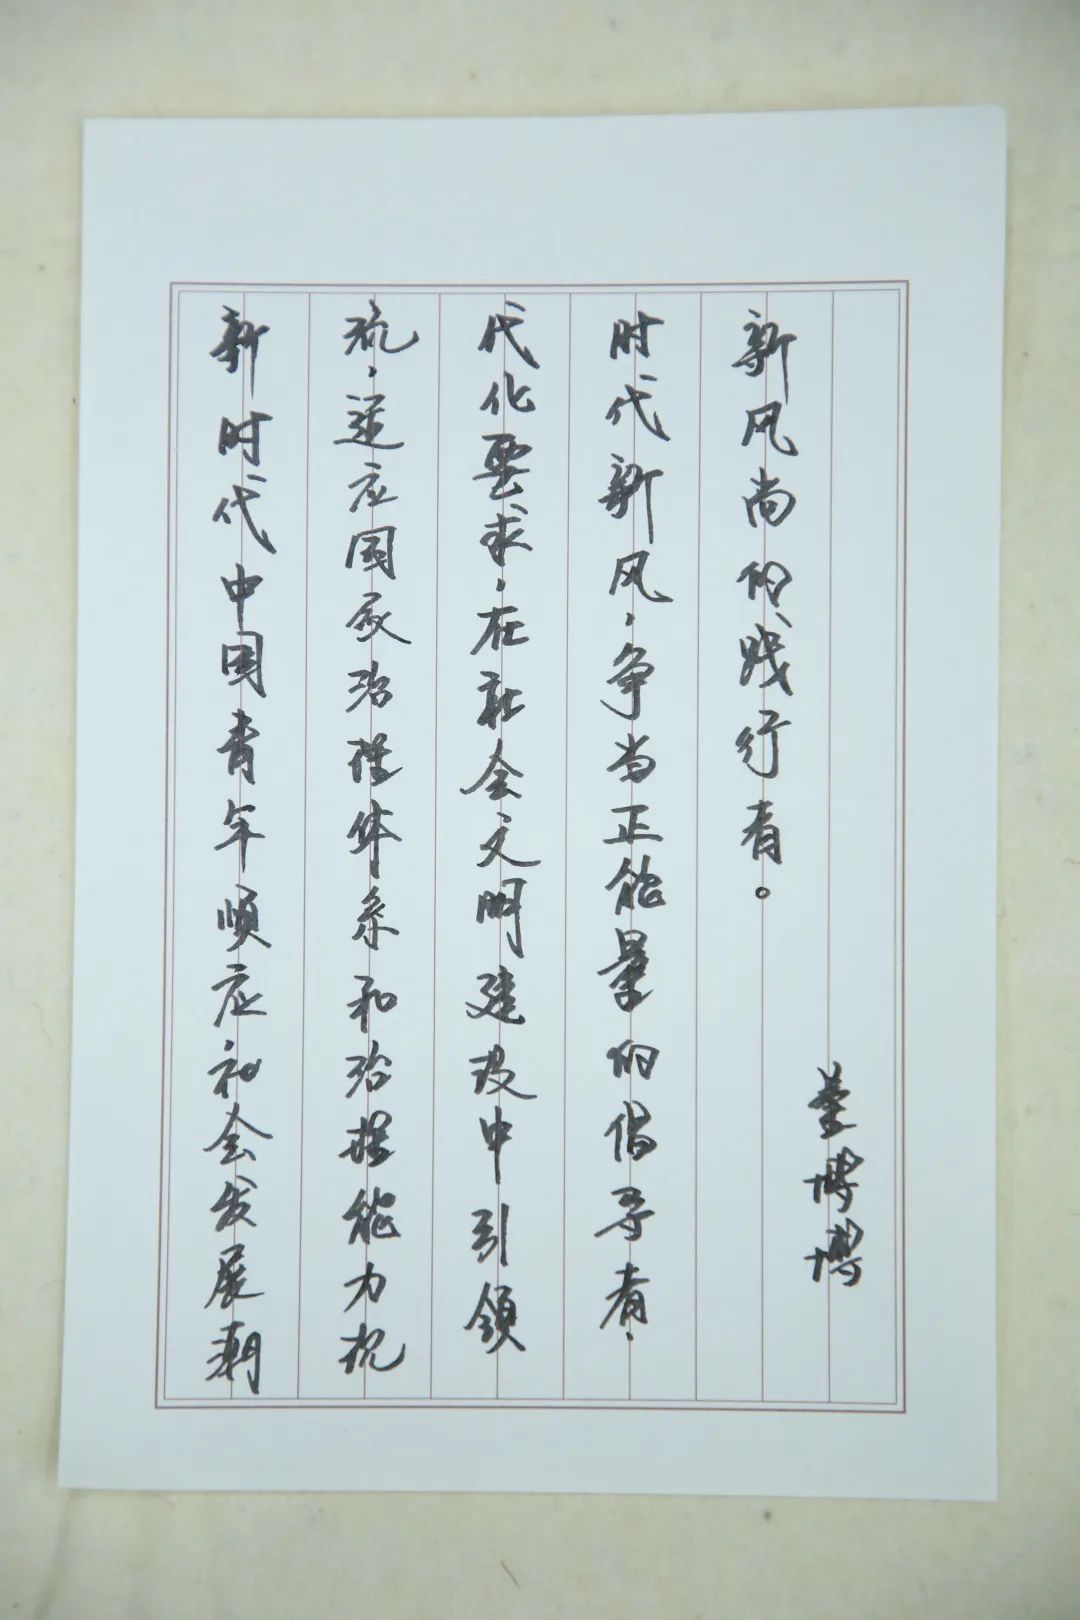 新时代中国青年顺应社会发展潮
流，适应国家治理体系和治理能力现
代化要求，在社会文明建设中引领
时代新风，争当正能量的倡导者、
新风尚的践行者。
董博博